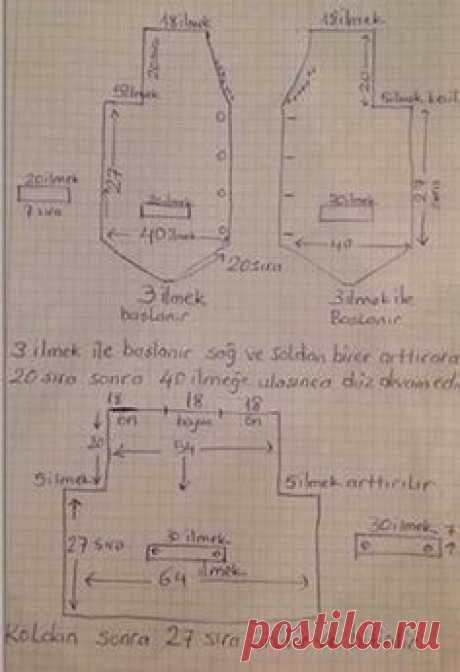 18 ilmek 18 ilmek
20 sıra 20
5 ilmek 5 ilmek
27 27 sıra
20 ilmek
7 sıra
20 ilmek 20 ilmek
40 ilmek 40
20 sıra
3 ilmek 3 ilmek ile
başlanır Başlanır
3 ilmek ile başlanır sağ ve soldan birer
20 sıra sonra 40 ilmeğe ulaşınca düz
18 18 18
ön boyun ön
20 54
5 ilmek 5 ilmek arttırılır
27 sıra 30 ilmek 30 ilmek 7
64 ilmek
Koldan sonra 27 sıra
postila.ru